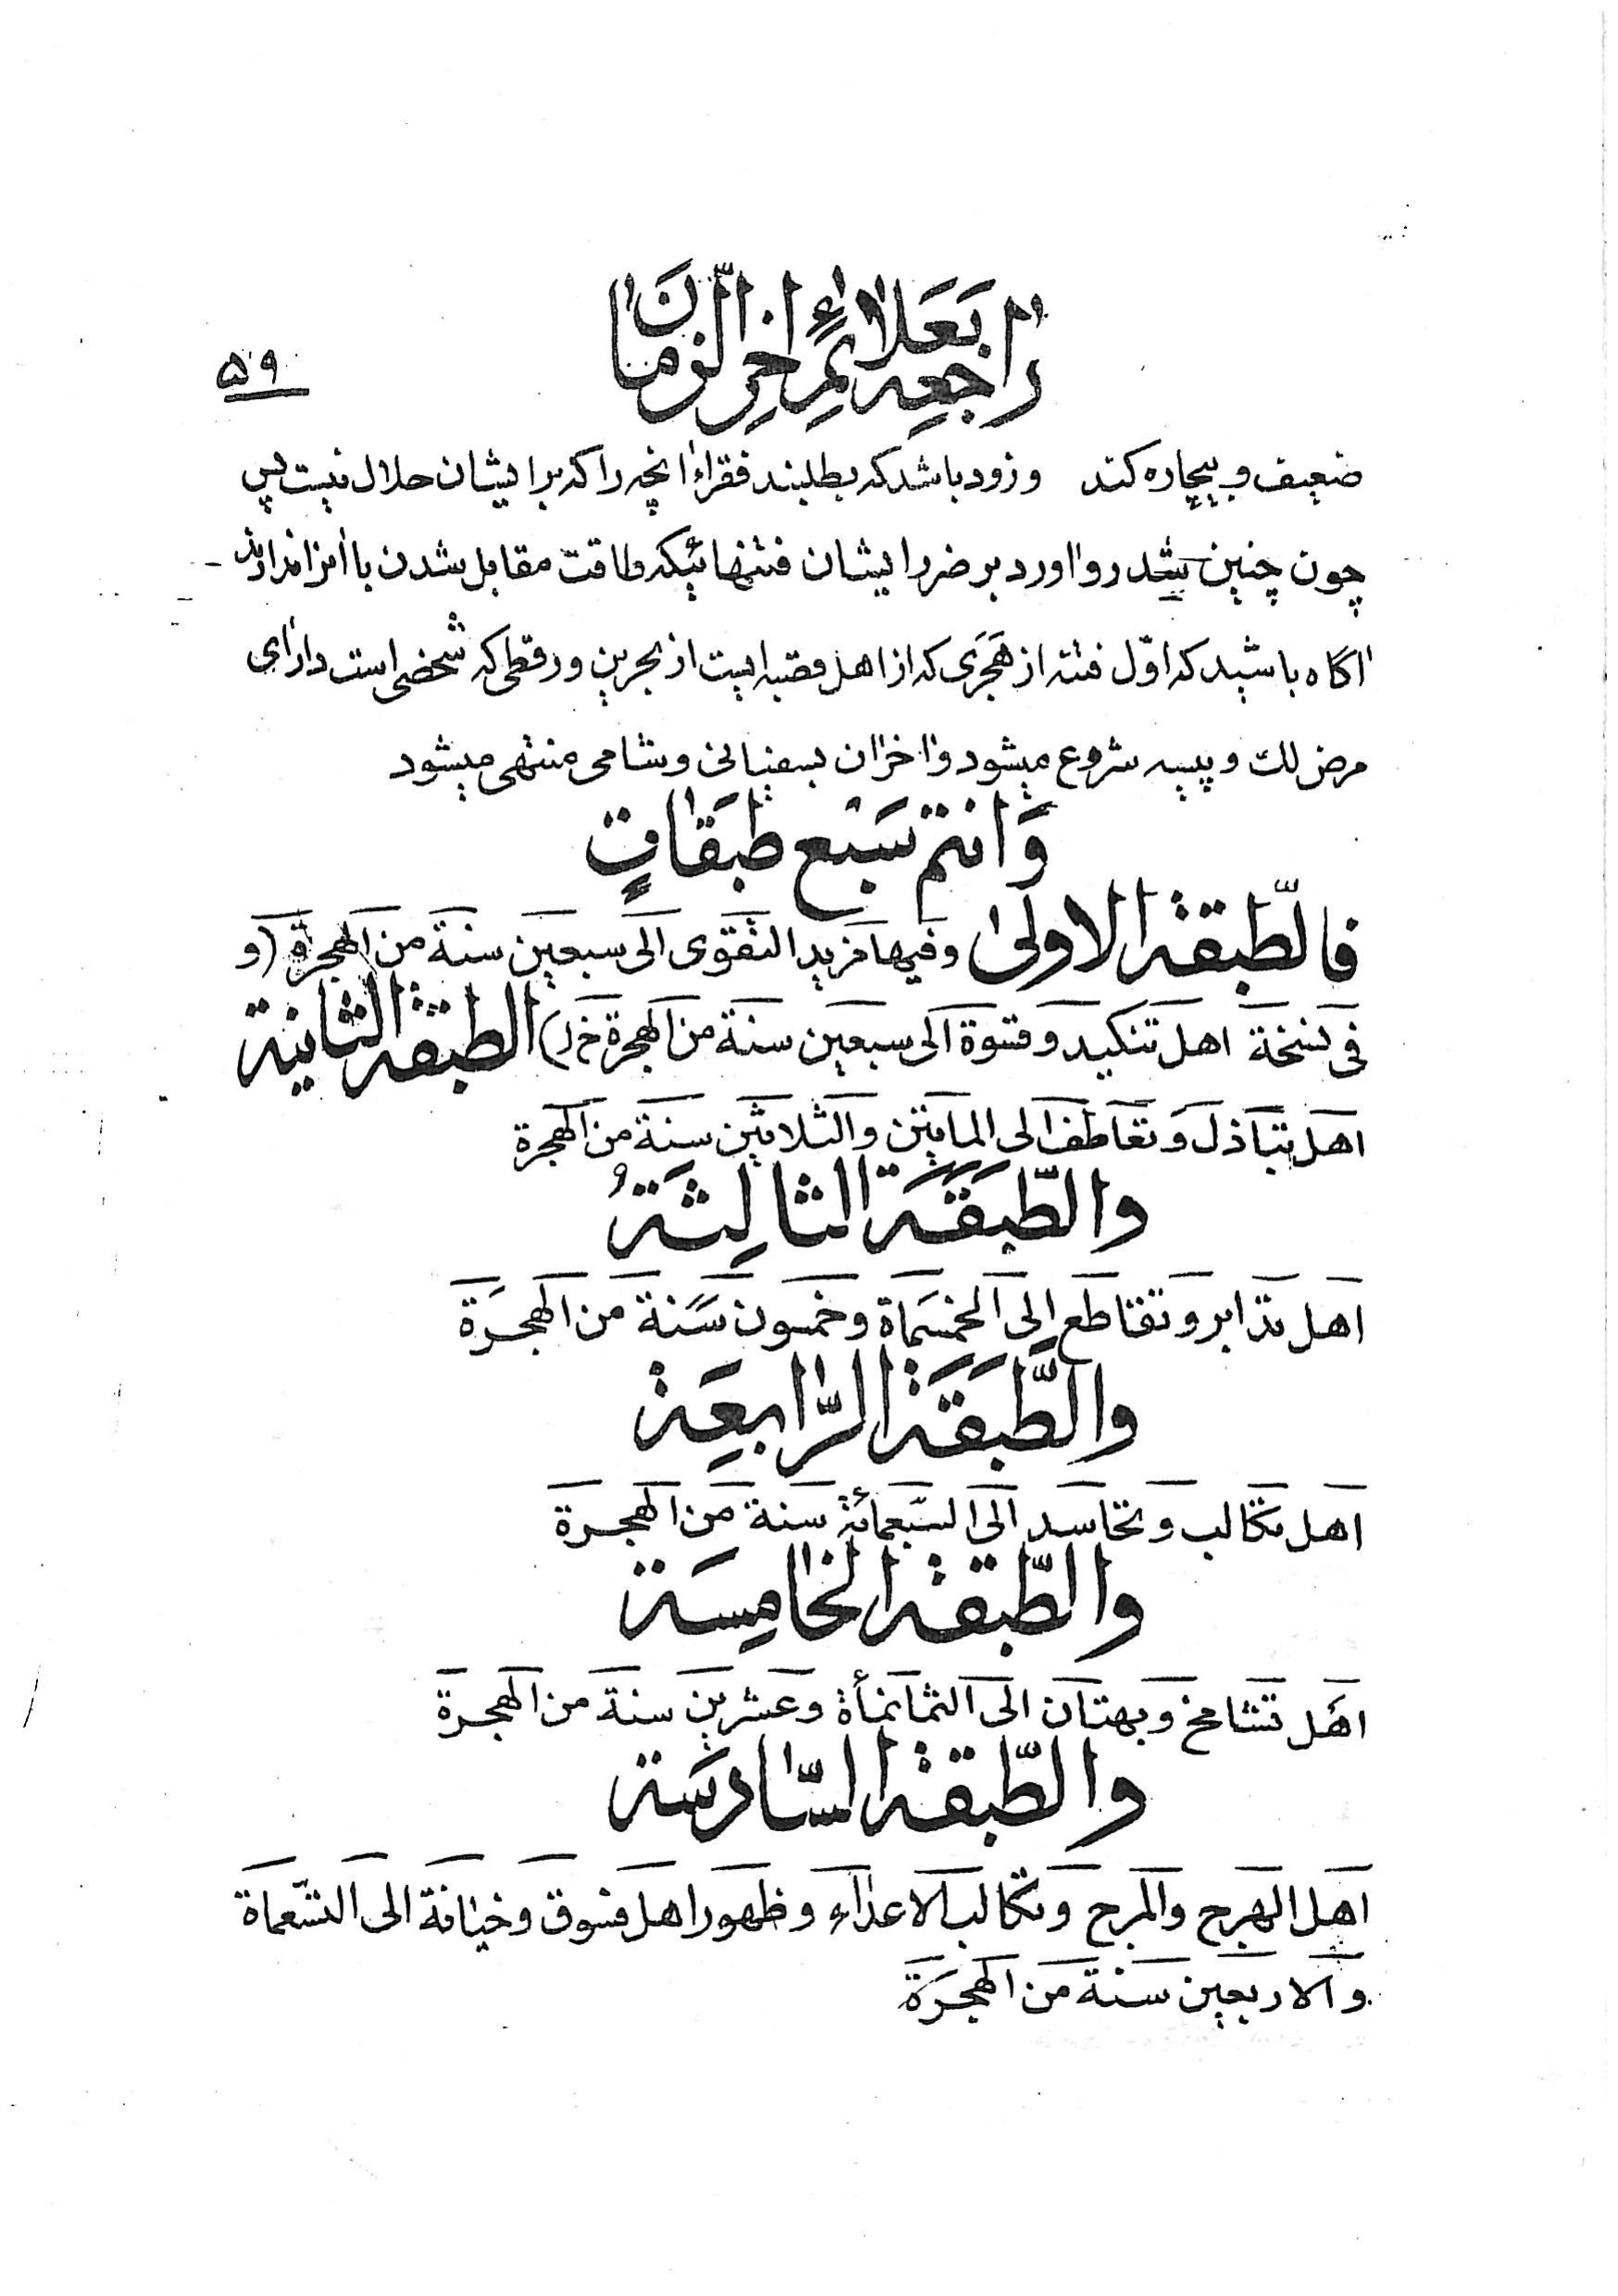 راجعه بعلائم اخر الزمان
۵۹
ضعیف و بیچاره کند و زود باشد که بطلبند فقراء انچه را که بر ایشان حلال نیست پس
چون چنین شد رو اورد بر ضرر ایشان فتنهائیکه طاقت مقابل شدن با انرا ندارند
اگاه باشید که اوّل فتنه از هَجَری که از اهل قصبه ایست از بحرین و رقطی که شخصی است دارای
مرض لك و پیسه شروع میشود و اخر ان بسفیانی و شامی منتهی میشود
وَ انتم سَبْع طَبَقَاتٍ
فالطّبقة الاولی وفیها مزید التقوی الی سبعین سنة من الهجرة (و
فی نسخة اهل تنکید و قسوة الی سبعین سنة من الهجرة خ ل) الطبقة الثانية
اهل تباذل و تعاطف الی المأتین والثلاثین سنة من الهجرة
والطّبَقَة الثالِثَةُ
اهل تدابر و تقاطع الی الخمسماة وخمسون سنة من الهجرة
والطَّبَقَة الرّابعِة
اهل تکالب و تحاسد الی السّبعمائة سنة من الهجرة
والطّبقة الخامِسَة
اهل تشامخ و بهتان الی الثمانمأة وعشرین سنة من الهجرة
والطّبقة السّادسَة
اهل الهرج والمرج وتکالب الاعداء وظهور اهل فسوق وخیانة الی التسّعماة
والاربعین سنة من الهجرة